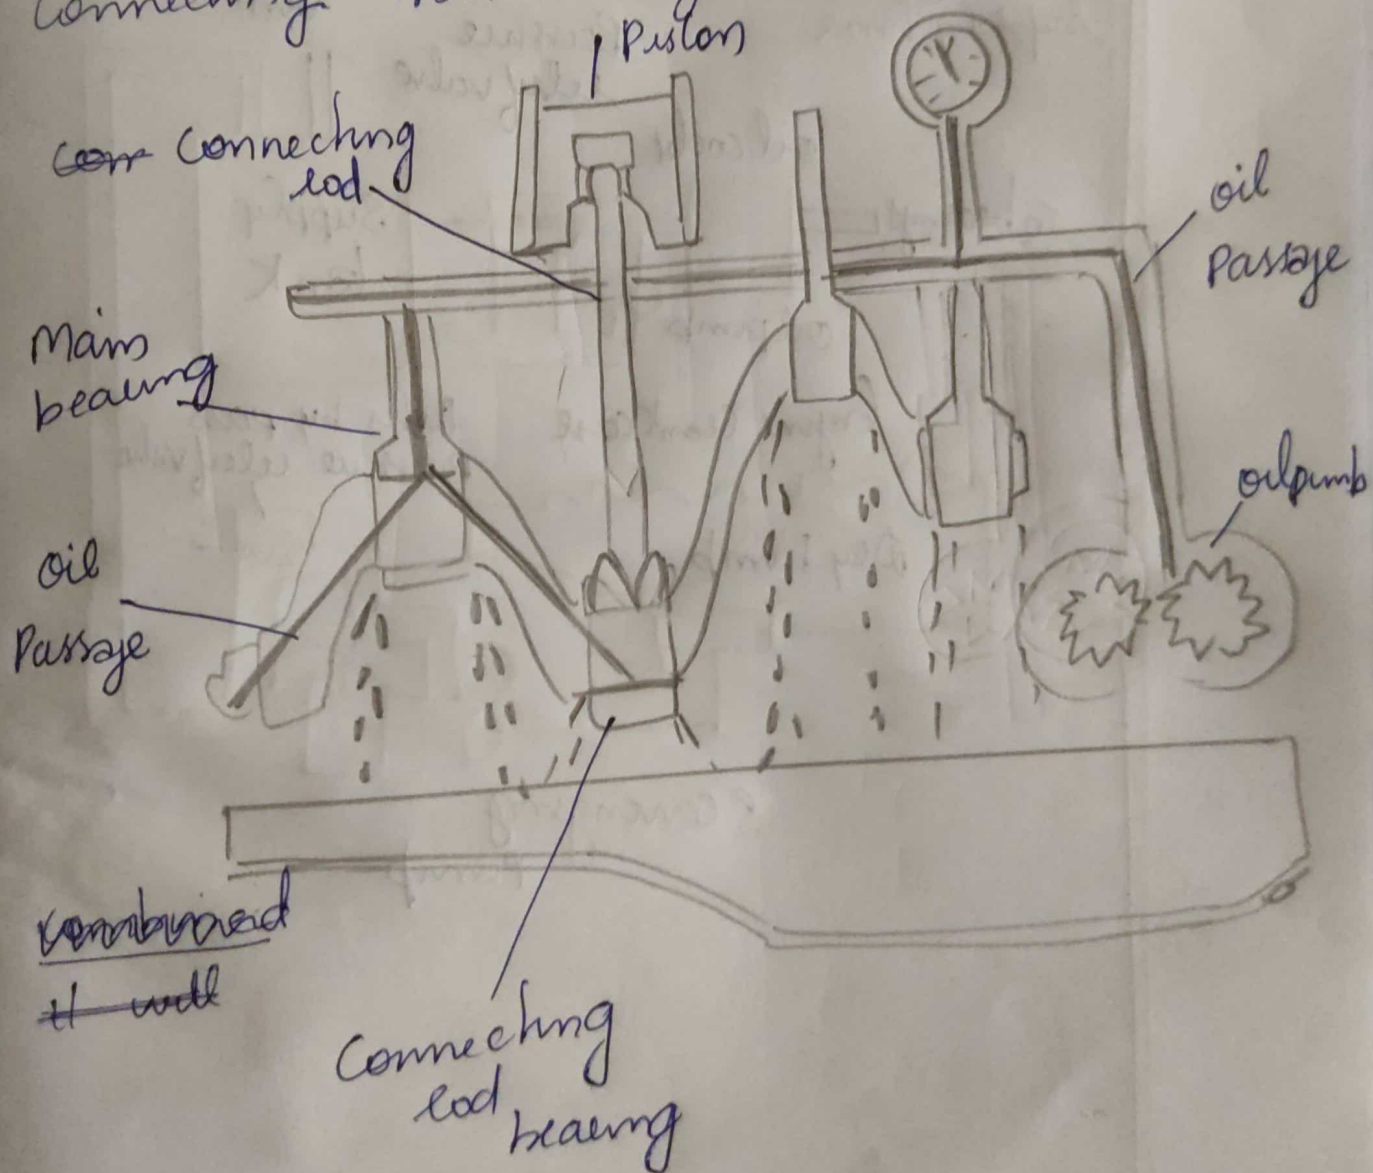 Connecting
Piston
Connecting
rod
oil
Passage
Main
bearing
oilpumb
oil
Passage
Combined
it will
Connecting
rod
bearing